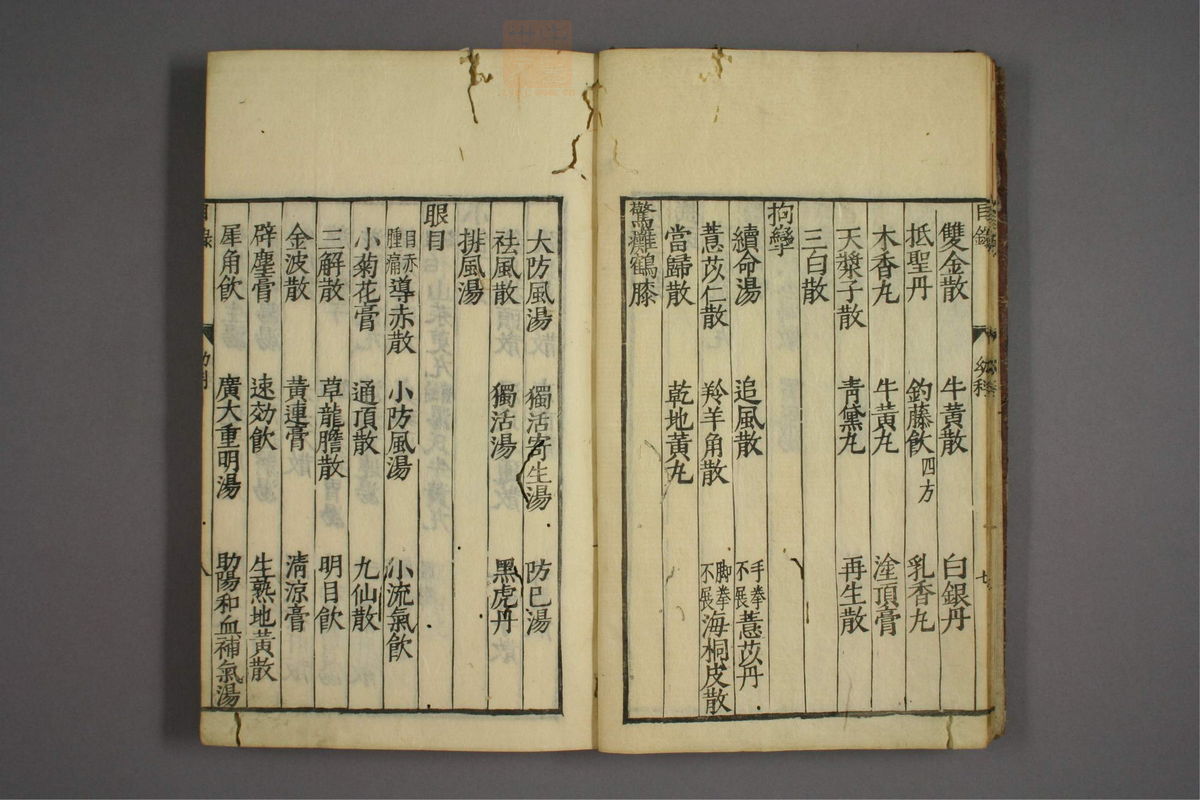 目錄 幼科 七
雙金散 牛黃散 白銀丹
抵聖丹 釣藤飲四方 乳香丸
木香丸 牛黃丸 塗頂膏
天漿子散 青黛丸 再生散
三白散
拘攣
續命湯 追風散 手拳不展薏苡丹
薏苡仁散 羚羊角散 脚拳不展海桐皮散
當歸散 乾地黃丸
驚癱鶴膝
大防風湯 獨活寄生湯 防巳湯
祛風散 獨活湯 黑虎丹
排風湯
眼目
目赤腫痛導赤散 小防風湯 小流氣飲
小菊花膏 通頂散 九仙散
三解散 草龍膽散 明目飲
金波散 黃連膏 清涼膏
辟塵膏 速効飲 生熟地黃散
犀角飲 廣大重明湯 助陽和血補氣湯